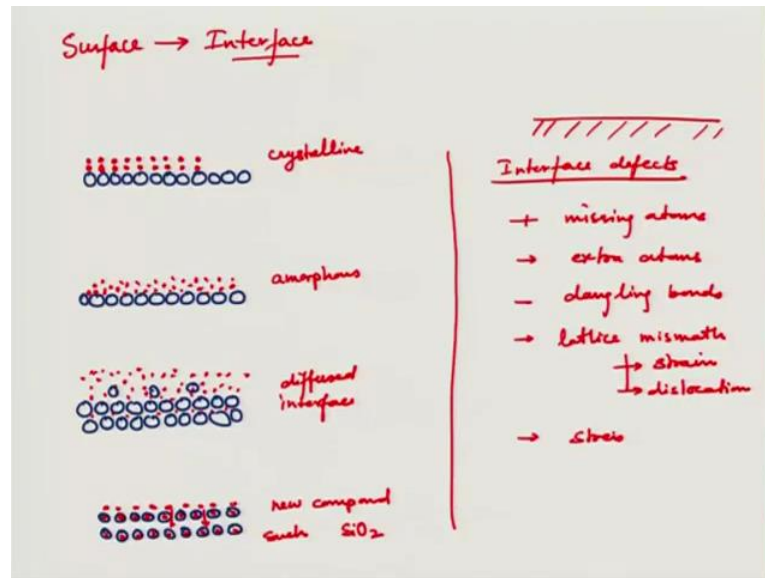 Surface → Interface
crystalline
amorphous
diffused
interface
new compound
such SiO2
Interface defects
+ missing atoms
→ extra atoms
– dangling bonds
→ lattice mismath
→ strain
→ dislocation
→ stress